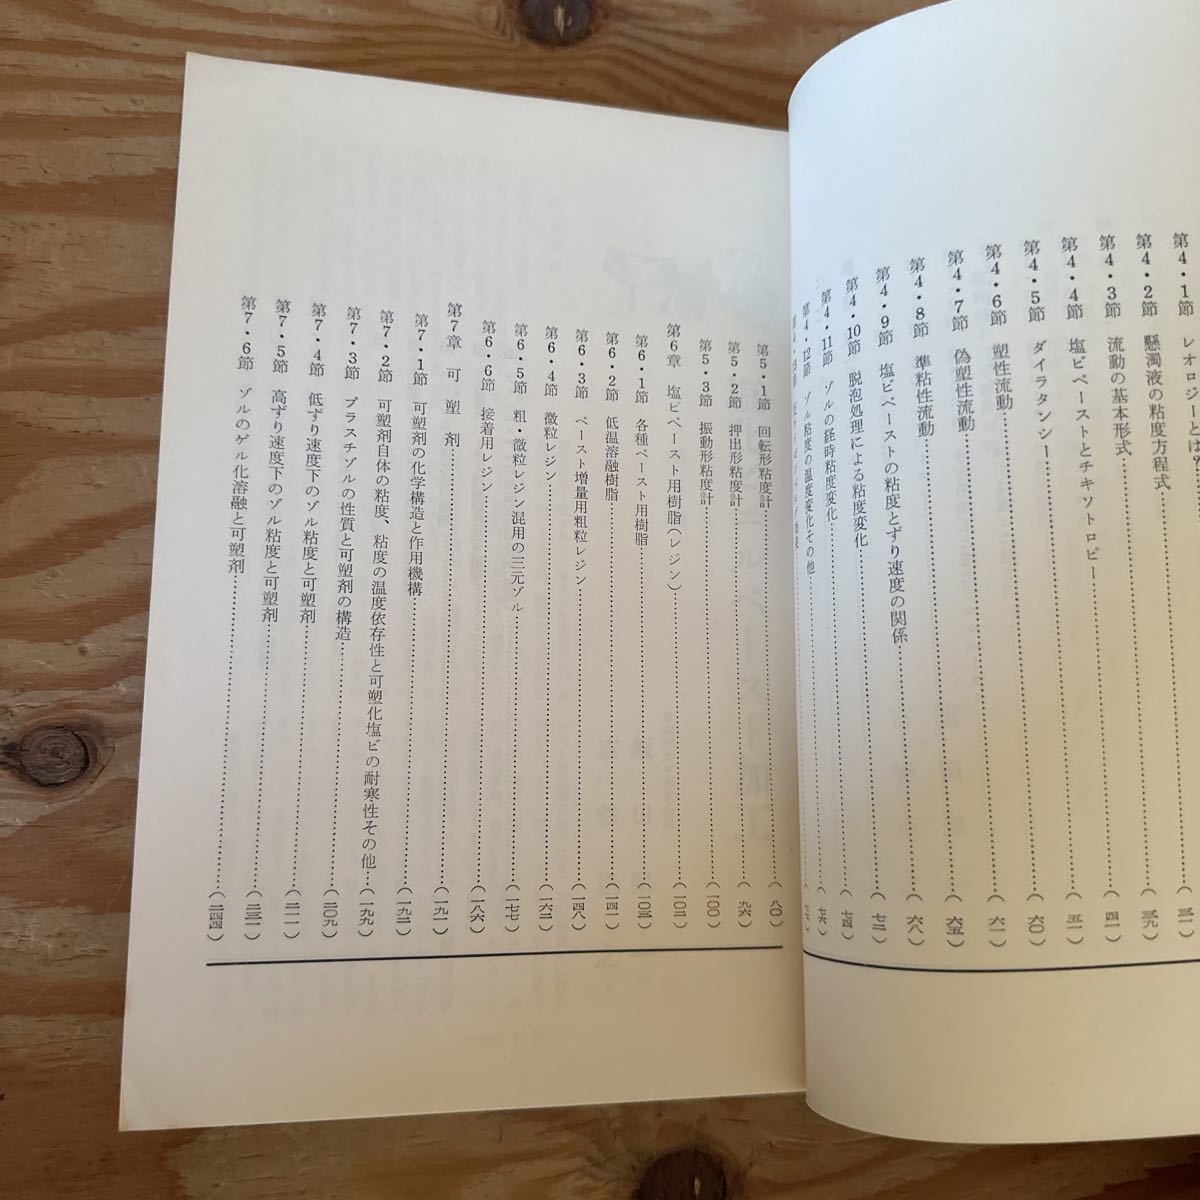 第4・1節 レオロジーとは?……(三一)
第4・2節 懸濁液の粘度方程式……(三九)
第4・3節 流動の基本形式……(四一)
第4・4節 塩ビペーストとチキソトロピー……(五一)
第4・5節 ダイラタンシー……(六〇)
第4・6節 塑性流動……(六一)
第4・7節 偽塑性流動……(六五)
第4・8節 準粘性流動……(六八)
第4・9節 塩ビペーストの粘度とずり速度の関係……(七二)
第4・10節 脱泡処理による粘度変化……(七四)
第4・11節 ゾルの経時粘度変化……(七六)
第4・12節 ゾル粘度の温度変化その他……
第4・13節
第5・1節 回転形粘度計……(八〇)
第5・2節 押出形粘度計……(九六)
第5・3節 振動形粘度計……(一〇〇)
第6章 塩ビペースト用樹脂(レジン)……(一〇二)
第6・1節 各種ペースト用樹脂……(一〇三)
第6・2節 低温溶融樹脂……(一四一)
第6・3節 ペースト増量用粗粒レジン……(一四八)
第6・4節 微粒レジン……(一六二)
第6・5節 粗・微粒レジン混用の三元ゾル……(一七七)
第6・6節 接着用レジン……(一八六)
第7章 可塑剤……(一九一)
第7・1節 可塑剤の化学構造と作用機構……(一九二)
第7・2節 可塑剤自体の粘度、粘度の温度依存性と可塑化塩ビの耐寒性その他……(一九九)
第7・3節 プラスチゾルの性質と可塑剤の構造……(二〇九)
第7・4節 低ずり速度下のゾル粘度と可塑剤……(二一一)
第7・5節 高ずり速度下のゾル粘度と可塑剤……(二三一)
第7・6節 ゾルのゲル化溶融と可塑剤……(二四四)